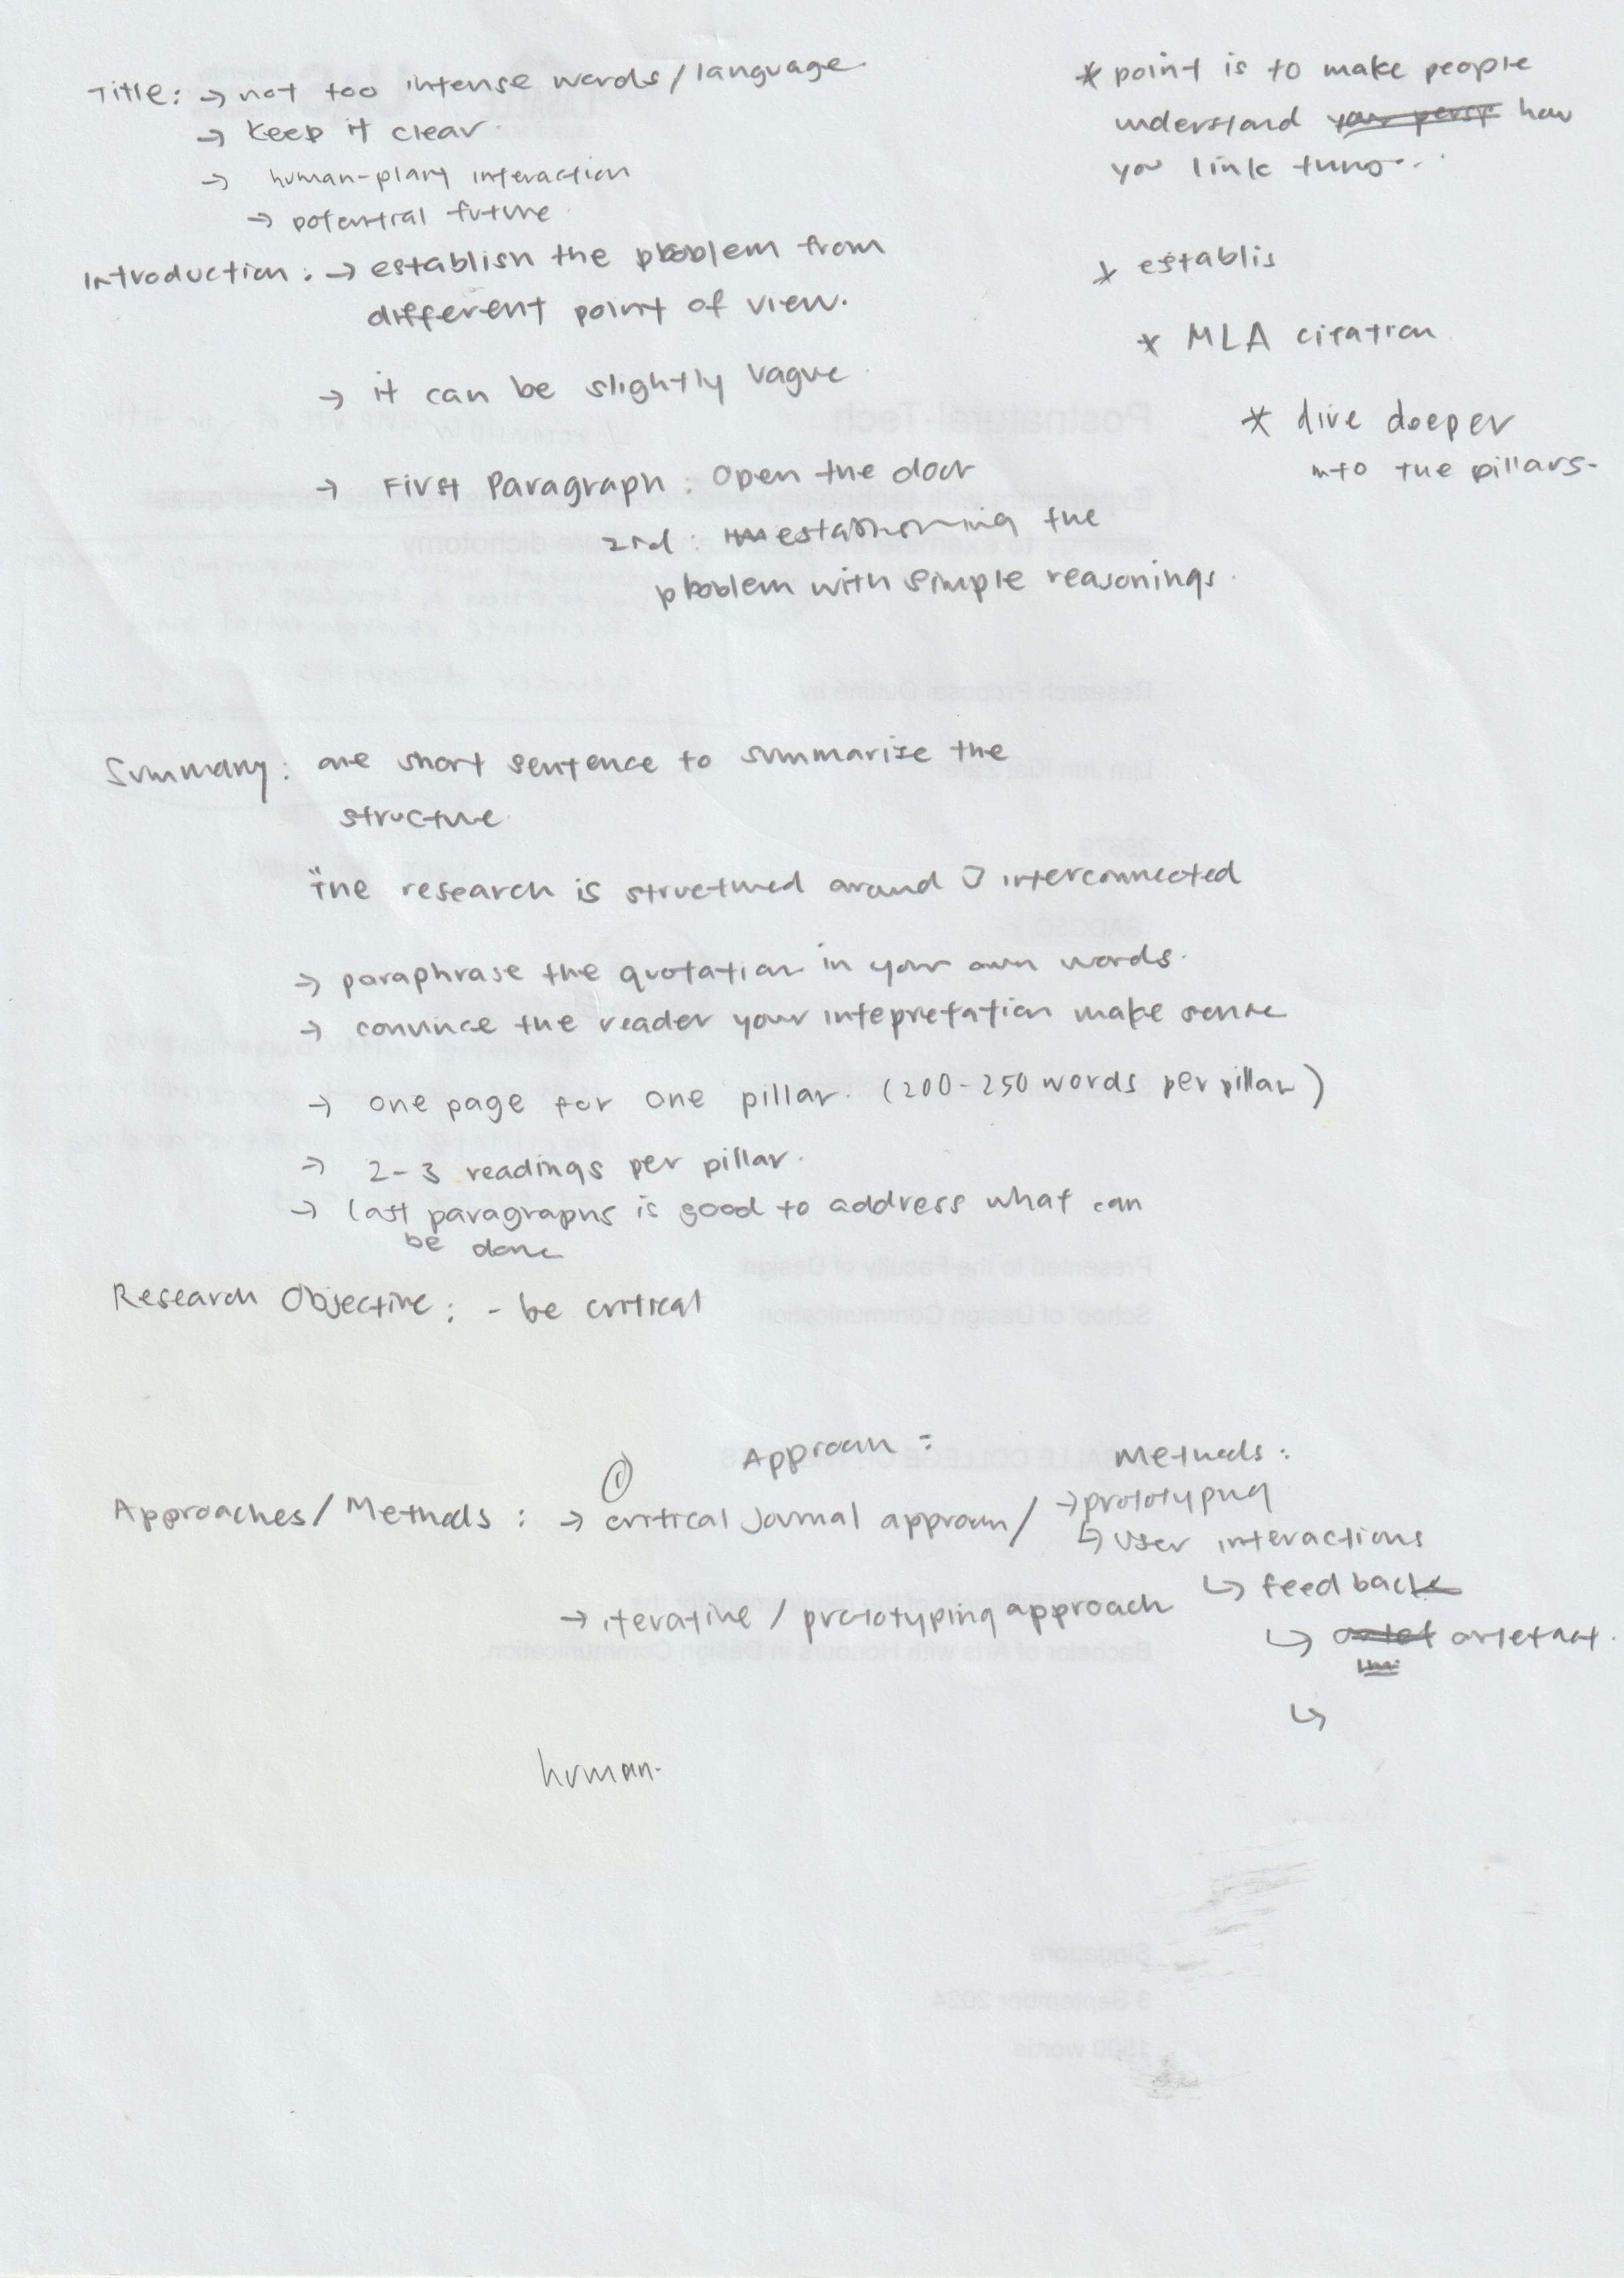 Title: → not too intense words/language.
→ keep it clear.
→ human-plany interaction
→ potential future.
Introduction: → establish the problem from
different point of view.
→ it can be slightly vague.
→ First Paragraph: Open the door
2nd: the
problem with simple reasonings.
* point is to make people
understand your persp how
you link
* establis
* MLA citation.
* dive deeper
into the pillars.
Summary: one short sentence to summarize the
structure.
"The research is structured around 3 interconnected
→ paraphrase the quotation in your own words.
→ convince the reader your intepretation make sense
→ one page for one pillar. (200-250 words per pillar)
→ 2-3 readings per pillar.
→ last paragraphs is good to address what can
be done
Research Objective: - be critical
Approach: Methods:
①
Approaches/Methods: → critical journal approach/ → prototyping
↳ user interactions
↳ feedback
→ iterative / prototyping approach
↳ artefact.
↳
human.
Postnatural-Tech
Research Proposal Outline by
Presented to the Faculty of Design
School of Design Communication
Bachelor of Arts with Honours in Design Communication
Singapore
3 September 2024
1500 words